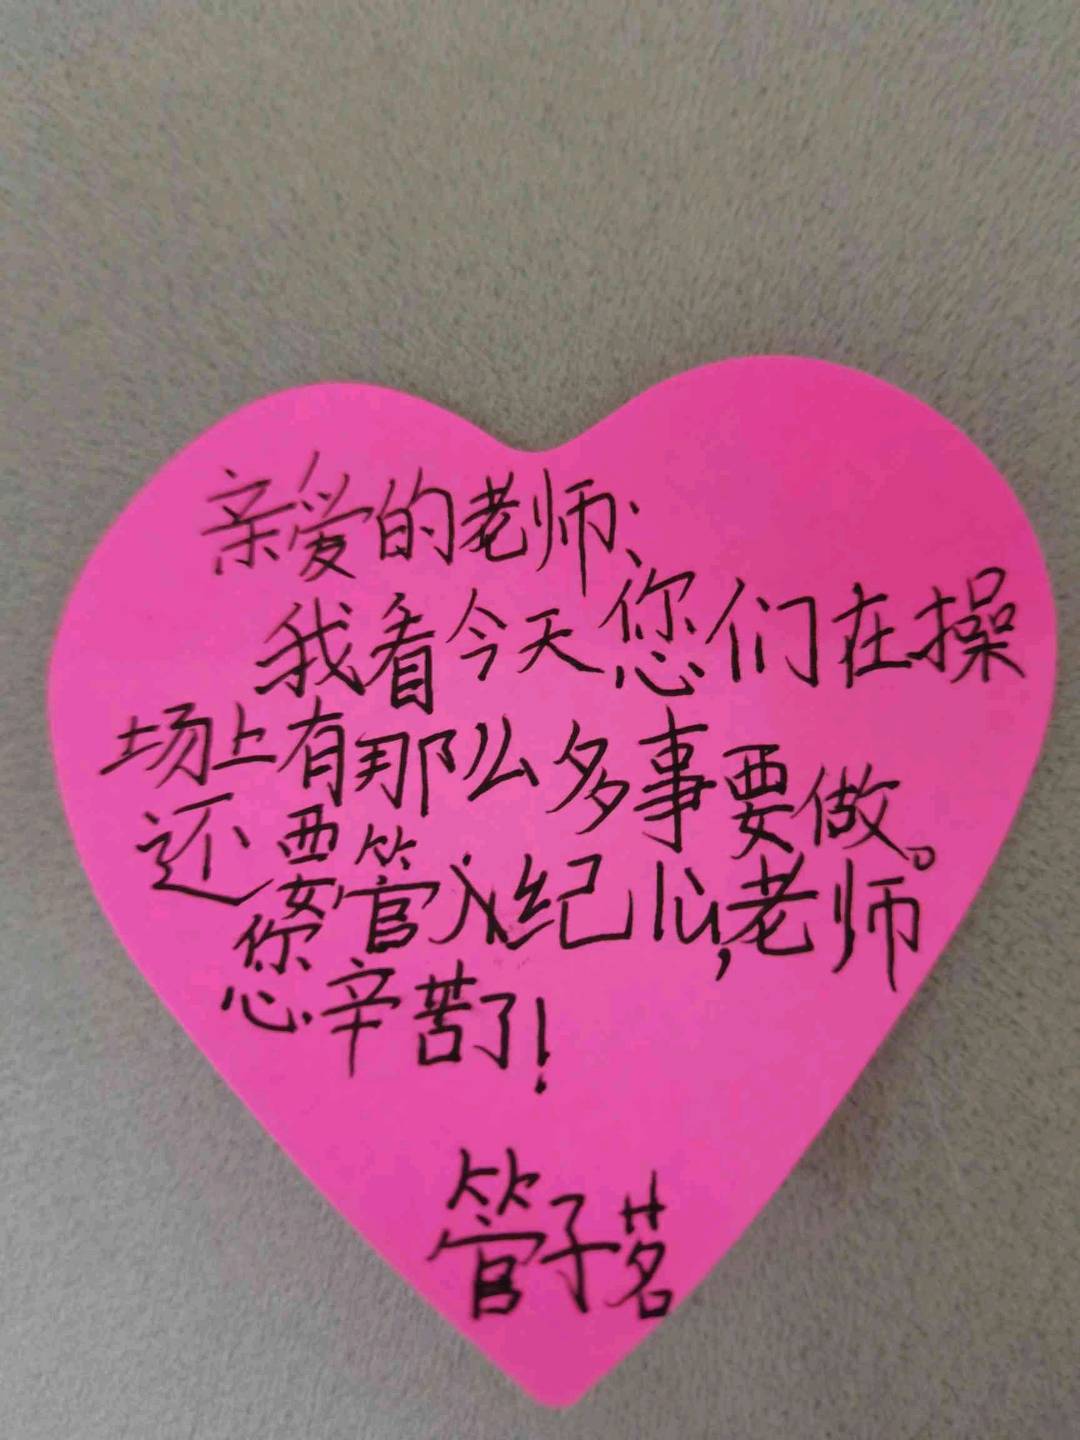 亲爱的老师:
我看今天您们在操
场上有那么多事要做。
还要管入纪心,老师
您辛苦了!
管子茗